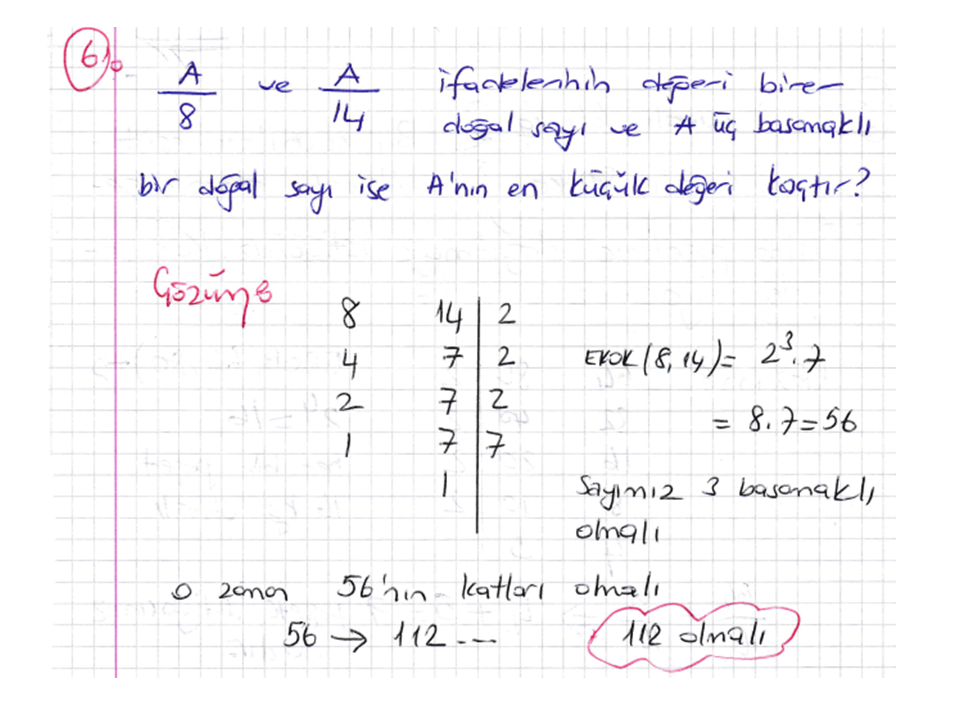 6.
A/8 ve A/14 ifadelerinin değeri birer
doğal sayı ve A üç basamaklı
bir doğal sayı ise A'nın en küçük değeri kaçtır?
Çözüm:
8 14 | 2
4 7 | 2
2 7 | 2
1 7 | 7
1
EKOK (8, 14) = 2³.7
= 8.7=56
Sayımız 3 basamaklı
olmalı
O zaman 56'nın katları olmalı
56 → 112 ---
112 olmalı